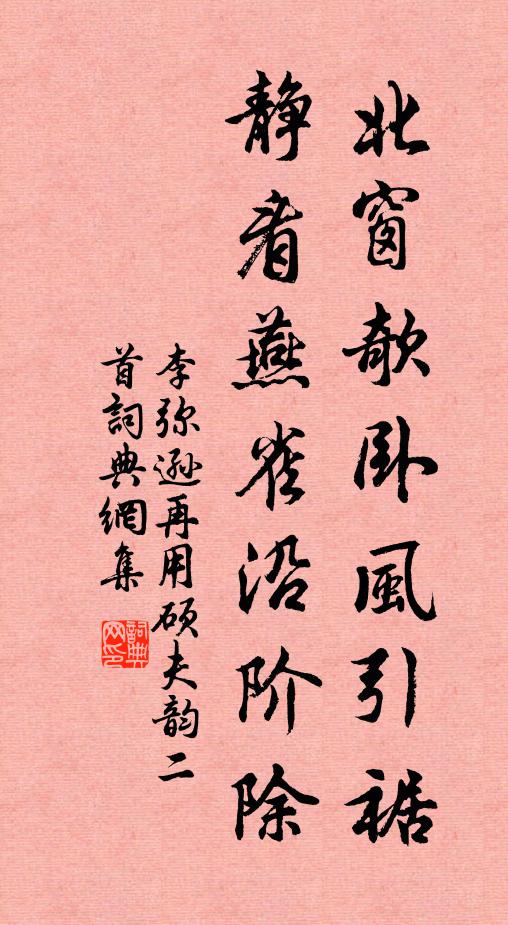 北窗欹卧風引裾
静看燕雀沿阶除
李弥遜再用硕夫韵二
首詞典網集
詞典网印